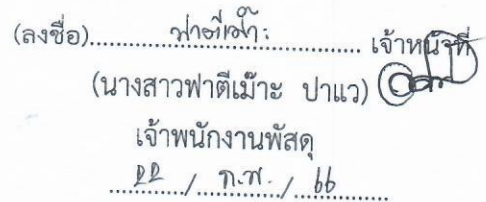 (ลงชื่อ)......ฟาตีเม๊าะ......เจ้าหน้าที่
(นางสาวฟาตีเม๊าะ ปาแว)
เจ้าพนักงานพัสดุ
22 / ก.พ. / 66